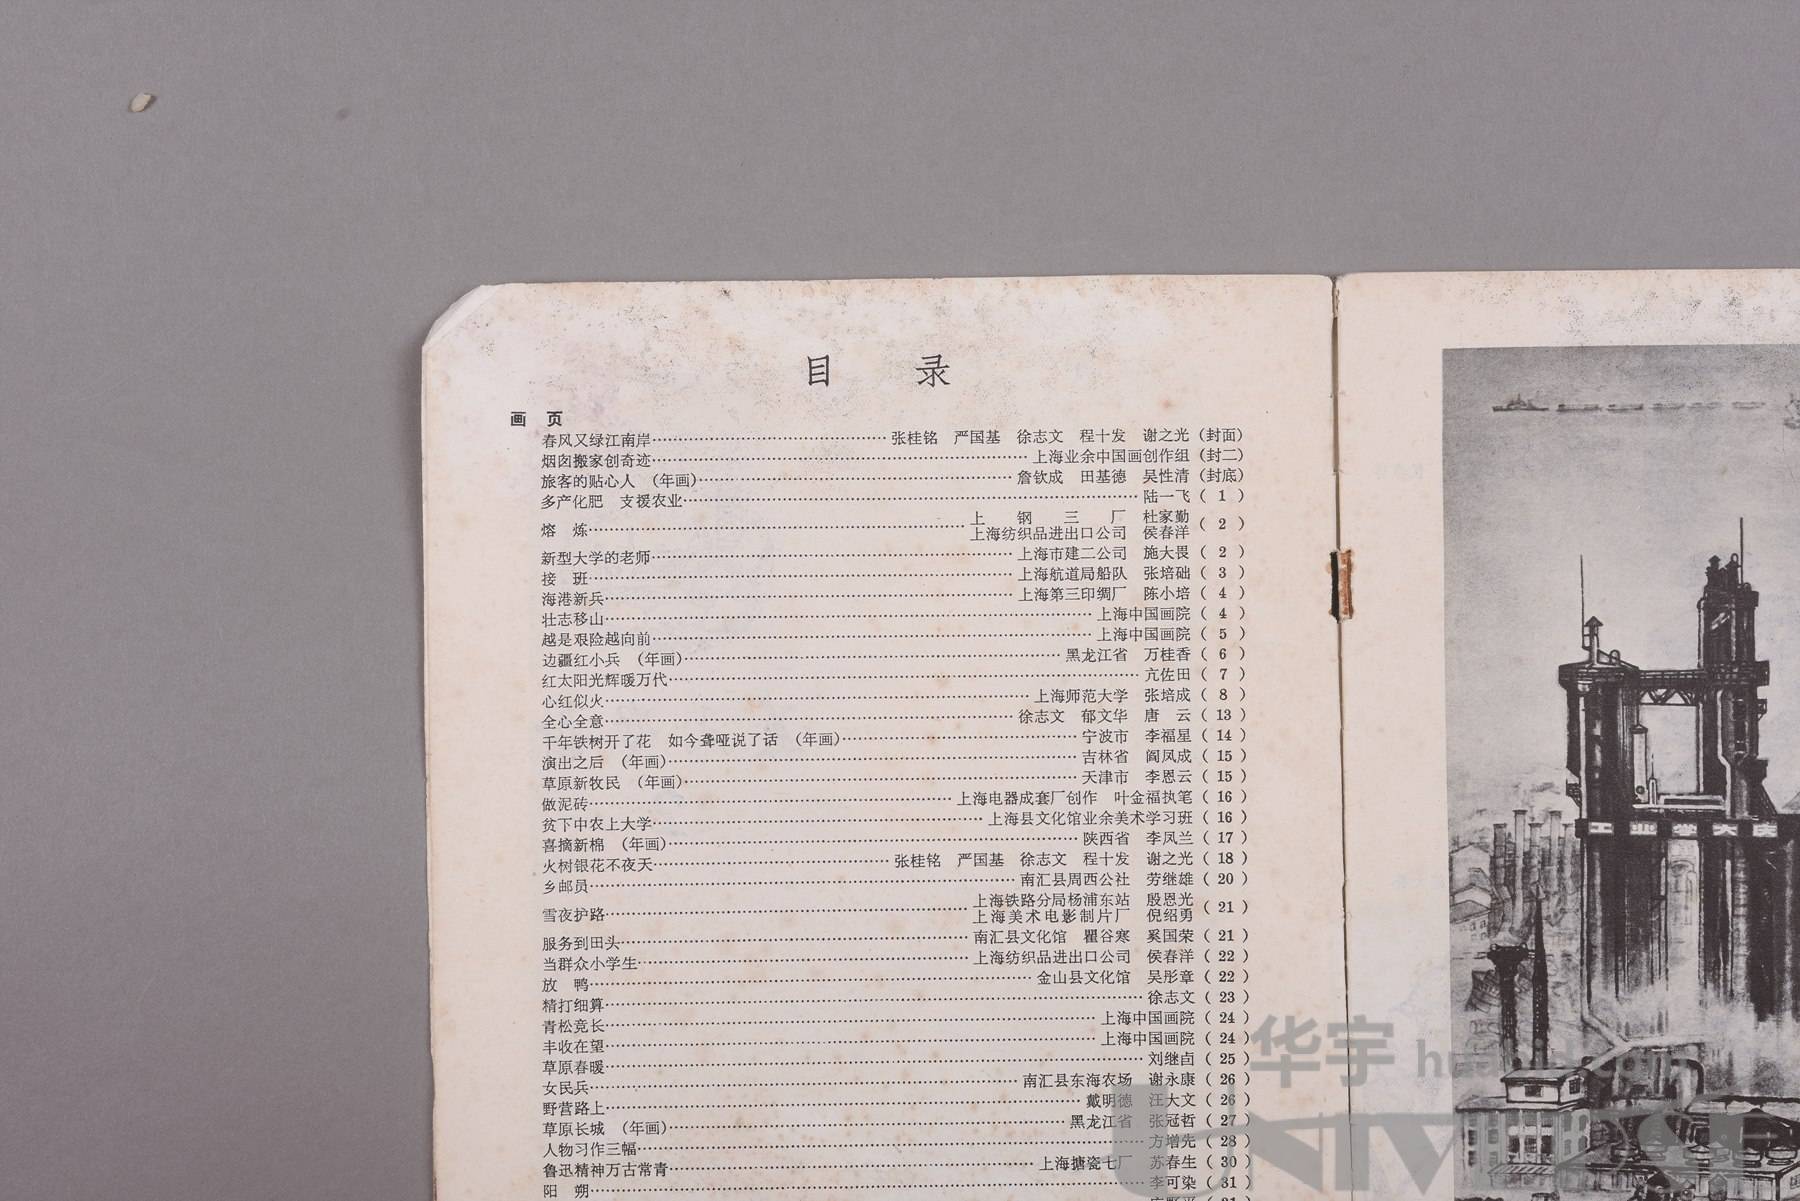 目 录
画 页
春风又绿江南岸……张桂铭 严国基 徐志文 程十发 谢之光（封面）
烟囱搬家创奇迹……上海业余中国画创作组（封二）
旅客的贴心人 （年画）……詹钦成 田基德 吴性清（封底）
多产化肥 支援农业……陆一飞（ 1 ）
熔 炼……上 钢 三 厂 杜家勤
上海纺织品进出口公司 侯春洋（ 2 ）
新型大学的老师……上海市建二公司 施大畏（ 2 ）
接 班……上海航道局船队 张培础（ 3 ）
海港新兵……上海第三印绸厂 陈小培（ 4 ）
壮志移山……上海中国画院（ 4 ）
越是艰险越向前……上海中国画院（ 5 ）
边疆红小兵 （年画）……黑龙江省 万桂香（ 6 ）
红太阳光辉暖万代……亢佐田（ 7 ）
心红似火……上海师范大学 张培成（ 8 ）
全心全意……徐志文 郁文华 唐 云（ 13 ）
千年铁树开了花 如今聋哑说了话 （年画）……宁波市 李福星（ 14 ）
演出之后 （年画）……吉林省 阎凤成（ 15 ）
草原新牧民 （年画）……天津市 李恩云（ 15 ）
做泥砖……上海电器成套厂创作 叶金福执笔（ 16 ）
贫下中农上大学……上海县文化馆业余美术学习班（ 16 ）
喜摘新棉 （年画）……陕西省 李凤兰（ 17 ）
火树银花不夜天……张桂铭 严国基 徐志文 程十发 谢之光（ 18 ）
乡邮员……南汇县周西公社 劳继雄（ 20 ）
雪夜护路……上海铁路分局杨浦东站 殷恩光
上海美术电影制片厂 倪绍勇（ 21 ）
服务到田头……南汇县文化馆 瞿谷寒 奚国荣（ 21 ）
当群众小学生……上海纺织品进出口公司 侯春洋（ 22 ）
放 鸭……金山县文化馆 吴彤章（ 22 ）
精打细算……徐志文（ 23 ）
青松竞长……上海中国画院（ 24 ）
丰收在望……上海中国画院（ 24 ）
草原春暖……刘继卣（ 25 ）
女民兵……南汇县东海农场 谢永康（ 26 ）
野营路上……戴明德 汪大文（ 26 ）
草原长城 （年画）……黑龙江省 张冠哲（ 27 ）
人物习作三幅……方增先（ 28 ）
鲁迅精神万古常青……上海搪瓷七厂 苏春生（ 30 ）
阳 朔……李可染（ 31 ）
工业学大庆
华宇